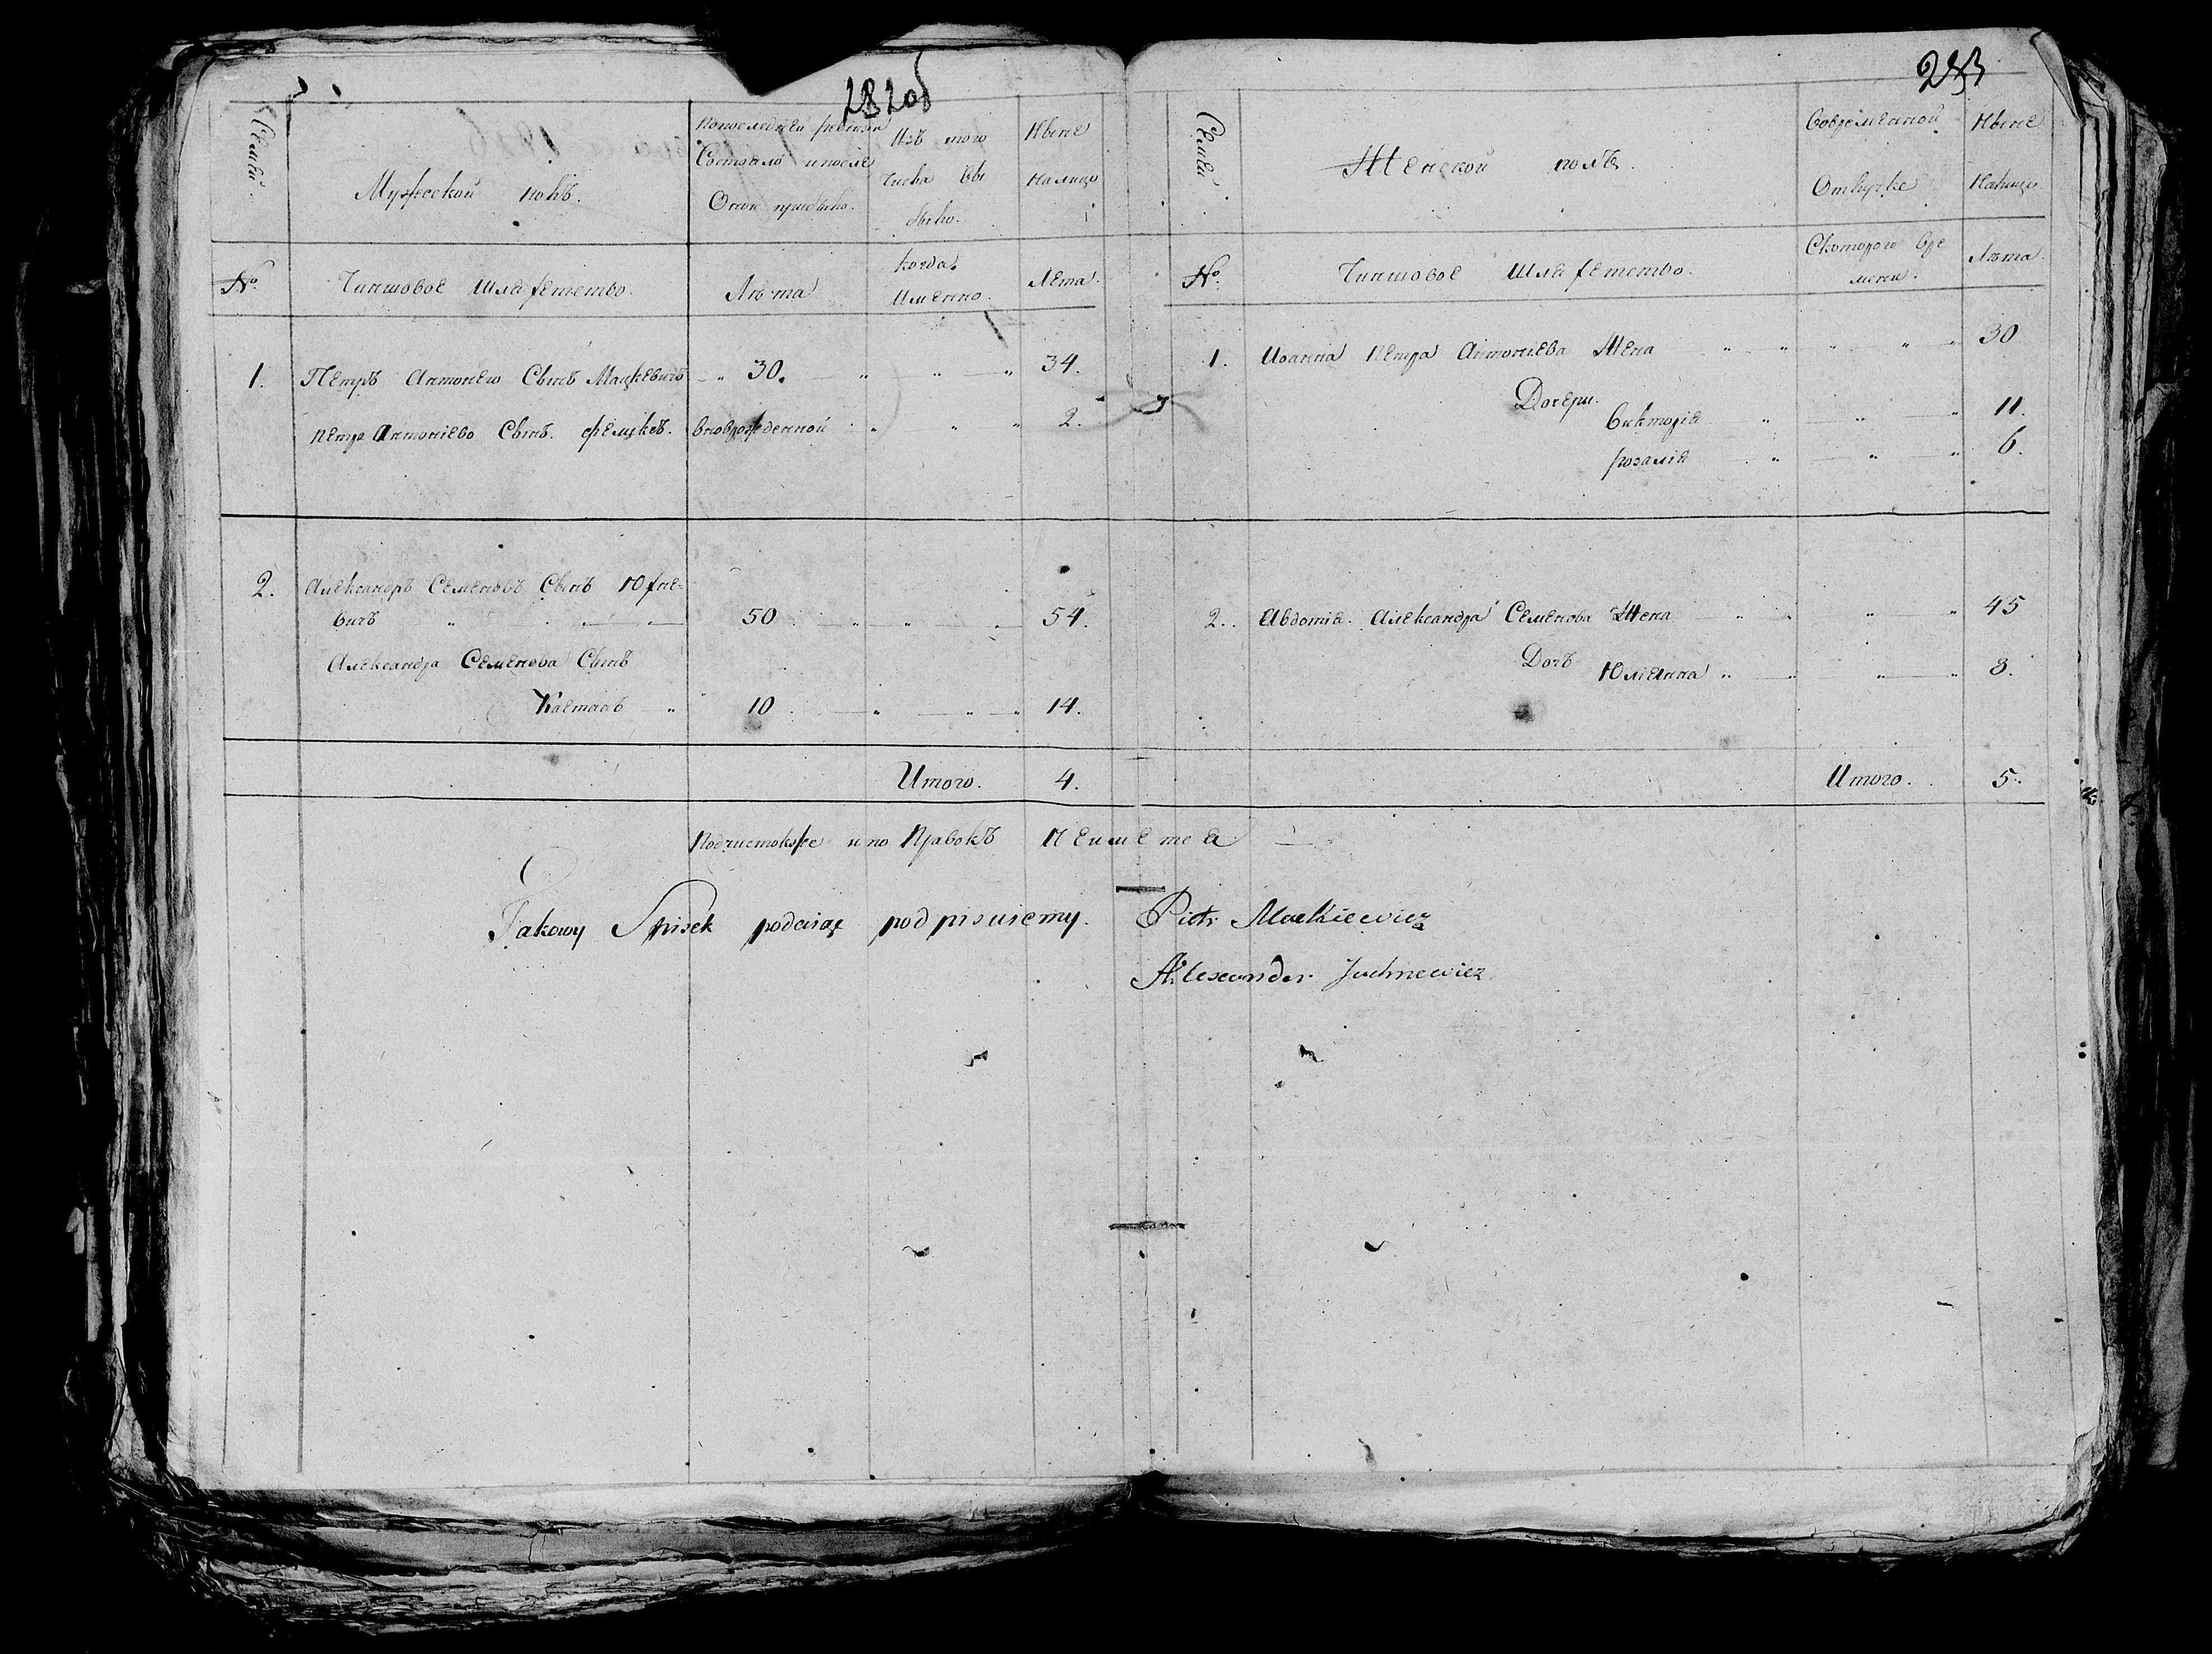 282об
Семьи.
Мужеской полъ.
Попоследней ревизи
Состояло ипосле
Оной прибыло.
Изъ того
Числа Вы
было.
Ныне
Налицо
№
Чиншовое Шляхетство.
Лѣта
когда
Именно.
Лета.
1. Петръ Антонего Сынъ Мацкевичъ 30. 34.
Петра Антоніево Сынъ. феликсъ. вновророжденной 2.
2. Александръ Семеновъ Сынъ Юхне-
вичъ 50 54.
Александра Семенова Сынъ
Каетанъ 10 14.
Итого. 4.
283
Семьи
Женской полъ.
Вовременной
Отлучке
Ныне
Налицо.
№.
Чиншовое Шляхетство.
Скоторого Вре
мени.
Лѣта.
1. Иоанна Петра Антоніева Жена 30
Дочери.
Викторія 11.
розалія 6.
2. Авдотія. Александра Семенова Жена 45
Дочь
Юліанна 8.
Итого. 5.
Подчистокже ипо Правокъ Неиметса
Takowy Spisek podaiąc podpisuiemy. Piotr Mackiewicz
Alexander Juchnewicz